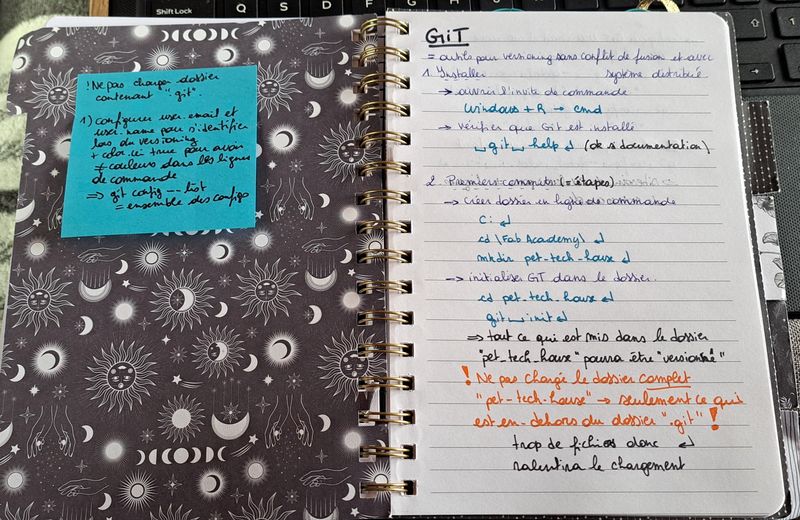 Shift Lock
! Ne pas charger dossier
contenant ".git".
1) configurer user.email et
user.name pour s'identifier
lors du versioning
+ color.ui true pour avoir
≠ couleurs dans les lignes
de commande
⇒ git config --list
= ensemble des configs
GIT
= outils pour versioning sans conflit de fusion et avec
système distribué
1. Installer
→ ouvrir l'invite de commande
windows + R → cmd
→ vérifier que Git est installé
␣git␣help ↲ (ok si documentation)
2. Premiers commits (= étapes)
→ Créer dossier en ligne de commande
C: ↲
cd \Fab Academy\ ↲
mkdir pet-tech-house ↲
→ initialiser GIT dans le dossier.
cd pet-tech-house ↲
git␣init ↲
⇒ tout ce qui est mis dans le dossier
"pet-tech-house" pourra être "versionné"
! Ne pas chargé le dossier complet
"pet-tech-house" → seulement ce qui
est en-dehors du dossier ".git" !
trop de fichiers donc ↲
ralentira le chargement